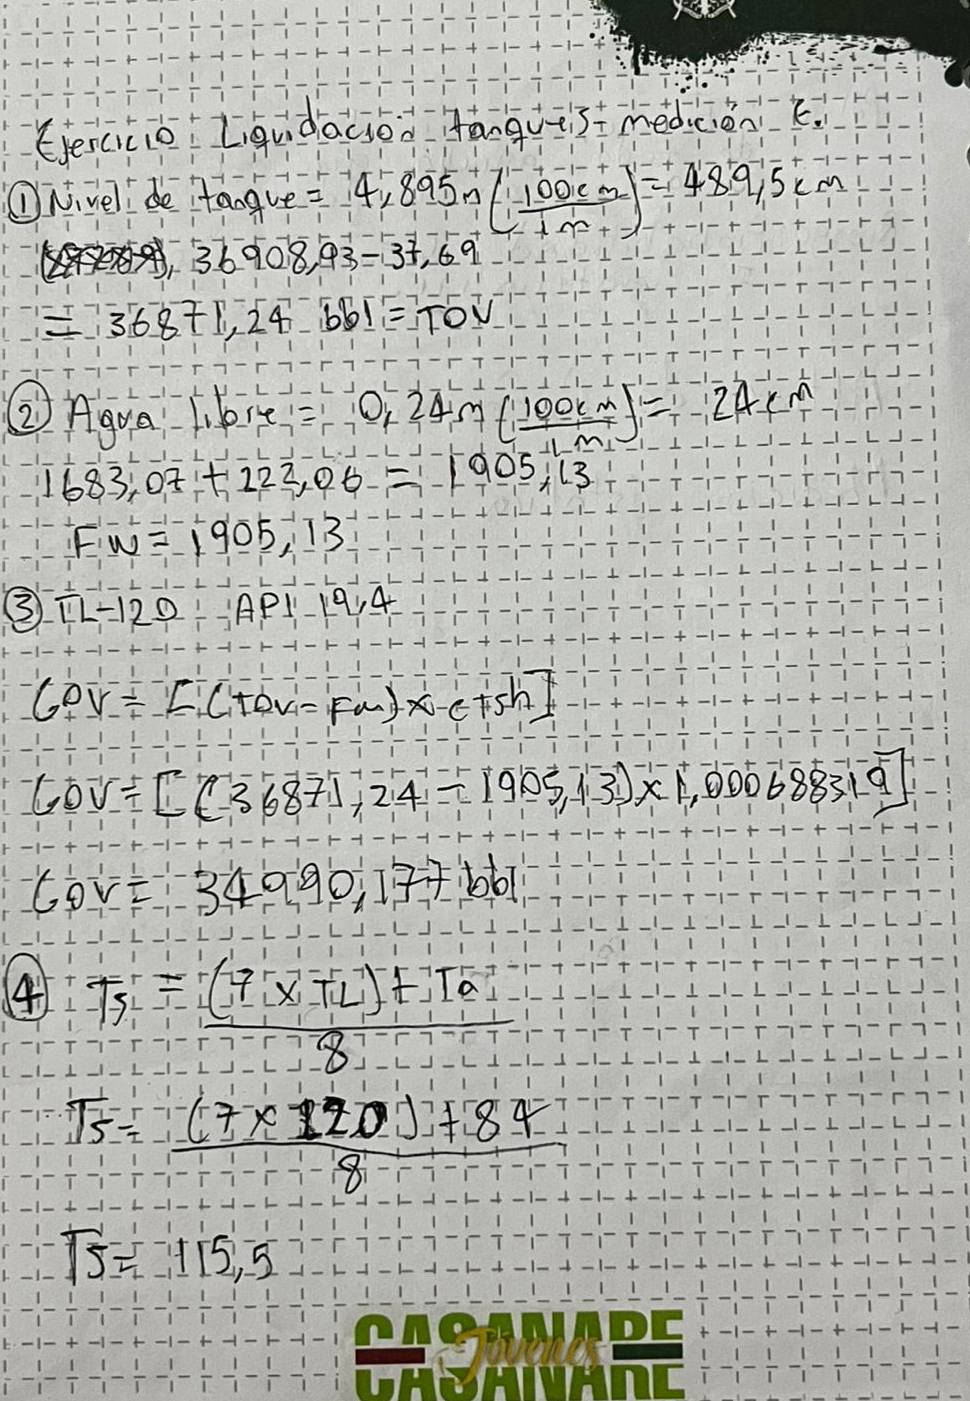 Ejercicio Liquidación tanques-medición E.
① Nivel de tanque = 4,895m (100cm/1m) = 489,5cm
36908,93-37,69
= 36871,24 bbl = TOV
② Agua libre = 0,24m (100cm/1m) = 24cm
1683,07 + 222,06 = 1905,13
FW = 1905,13
③ TL-120 API 19,4
GOV = [(TOV-FW) x ctsh]
GOV = [(36871,24 - 1905,13) x 1,000688319]
GOV = 34990,177 bbl
④ Ts = (7 x TL) + Ta
8
Ts = (7 x 120) + 84
8
Ts = 115,5
CASANARE
Jóvenes
CASANARE